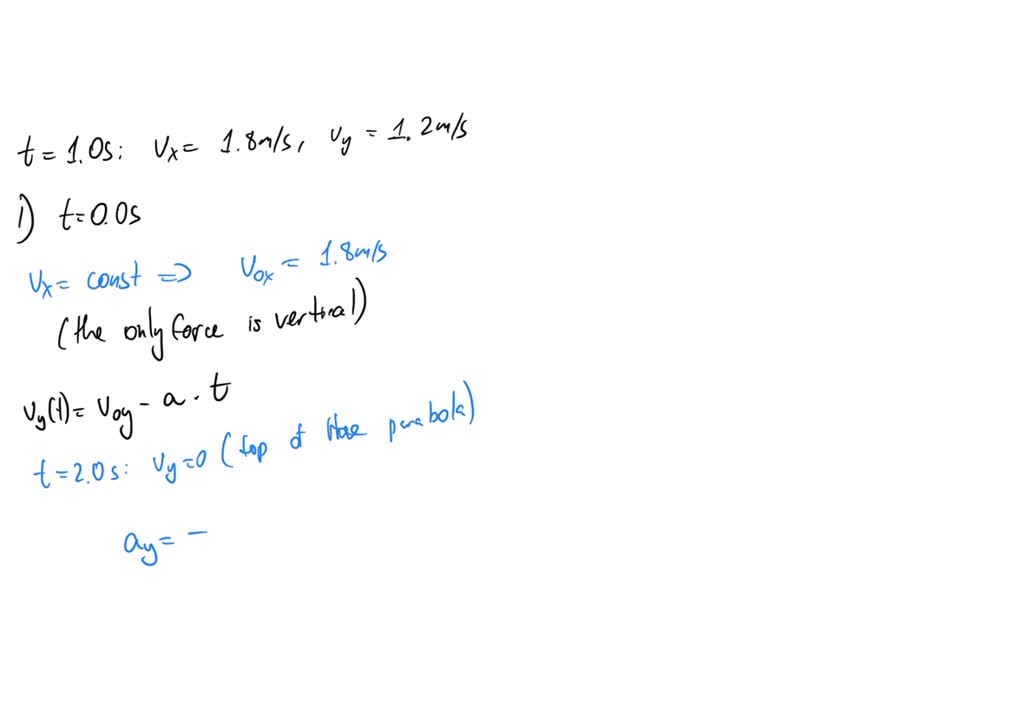 t = 1.0s: Vx = 1.8m/s, Vy = 1.2m/s
1) t=0.0s
Vx = const => Vox = 1.8m/s
(the only force is vertical)
Vy(t) = Voy - a . t
t = 2.0s: Vy=0 (top of parabola)
ay = -